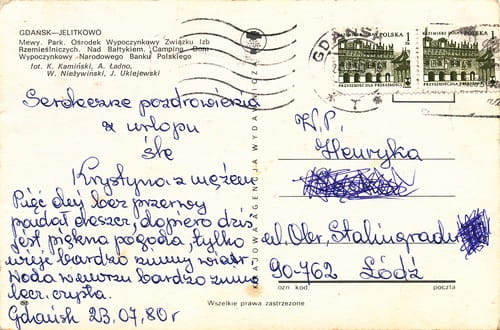 GDAŃSK—JELITKOWO
Mewy. Park. Ośrodek Wypoczynkowy Związku Izb
Rzemieślniczych. Nad Bałtykiem. Camping. Dom
Wypoczynkowy Narodowego Banku Polskiego
fot. K. Kamiński, A. Ładno,
W. Nieżywiński, J. Uklejewski
Serdeczne pozdrowienia
z urlopu
śle
Krystyna z mężem
Pięć dni bez przerwy
padał deszcz, dopiero dziś
jest piękna pogoda, tylko
wieje bardzo zimny wiatr.
Woda w morzu bardzo zimna
lecz czysta.
Gdańsk 23.07.80r
KRAJOWA AGENCJA WYDAWNICZA
GDAŃSK
POLSKA
POLSKA
W.P.
Henryka
ul. Obr. Stalingradu
90-762 Łódź
ozn kod
poczta
Wszelkie prawa zastrzeżone